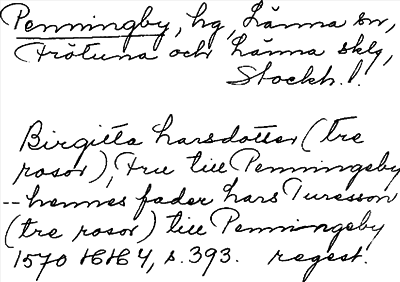 Penningby, hg, Länna sn,
Frötuna och Länna sklg,
Stockh. l.
Birgitta Larsdotter (tre
rosor), Fru till Penningeby
-- hennes fader Lars Turesson
(tre rosor) till Penningeby
1570 HH 4, s. 393. regest.